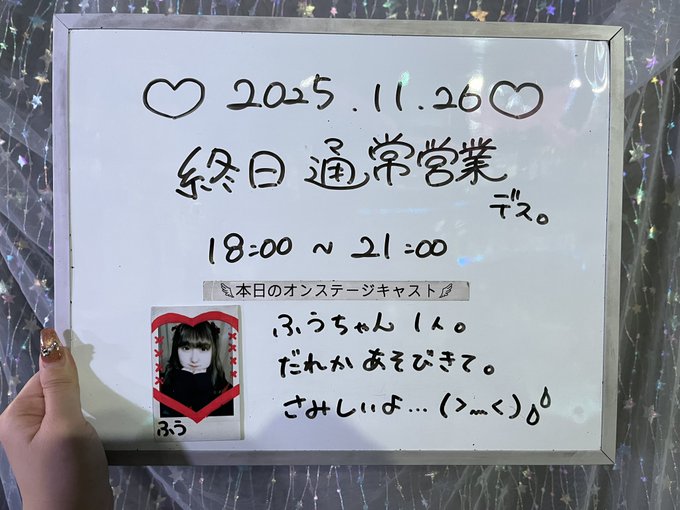 ♡ 2025.11.26 ♡
終日 通常営業
デス。
18:00 ~ 21:00
本日のオンステージキャスト
ふうちゃん 1人。
だれか あそびきて。
さみしいよ…(>﹏<)
ふう